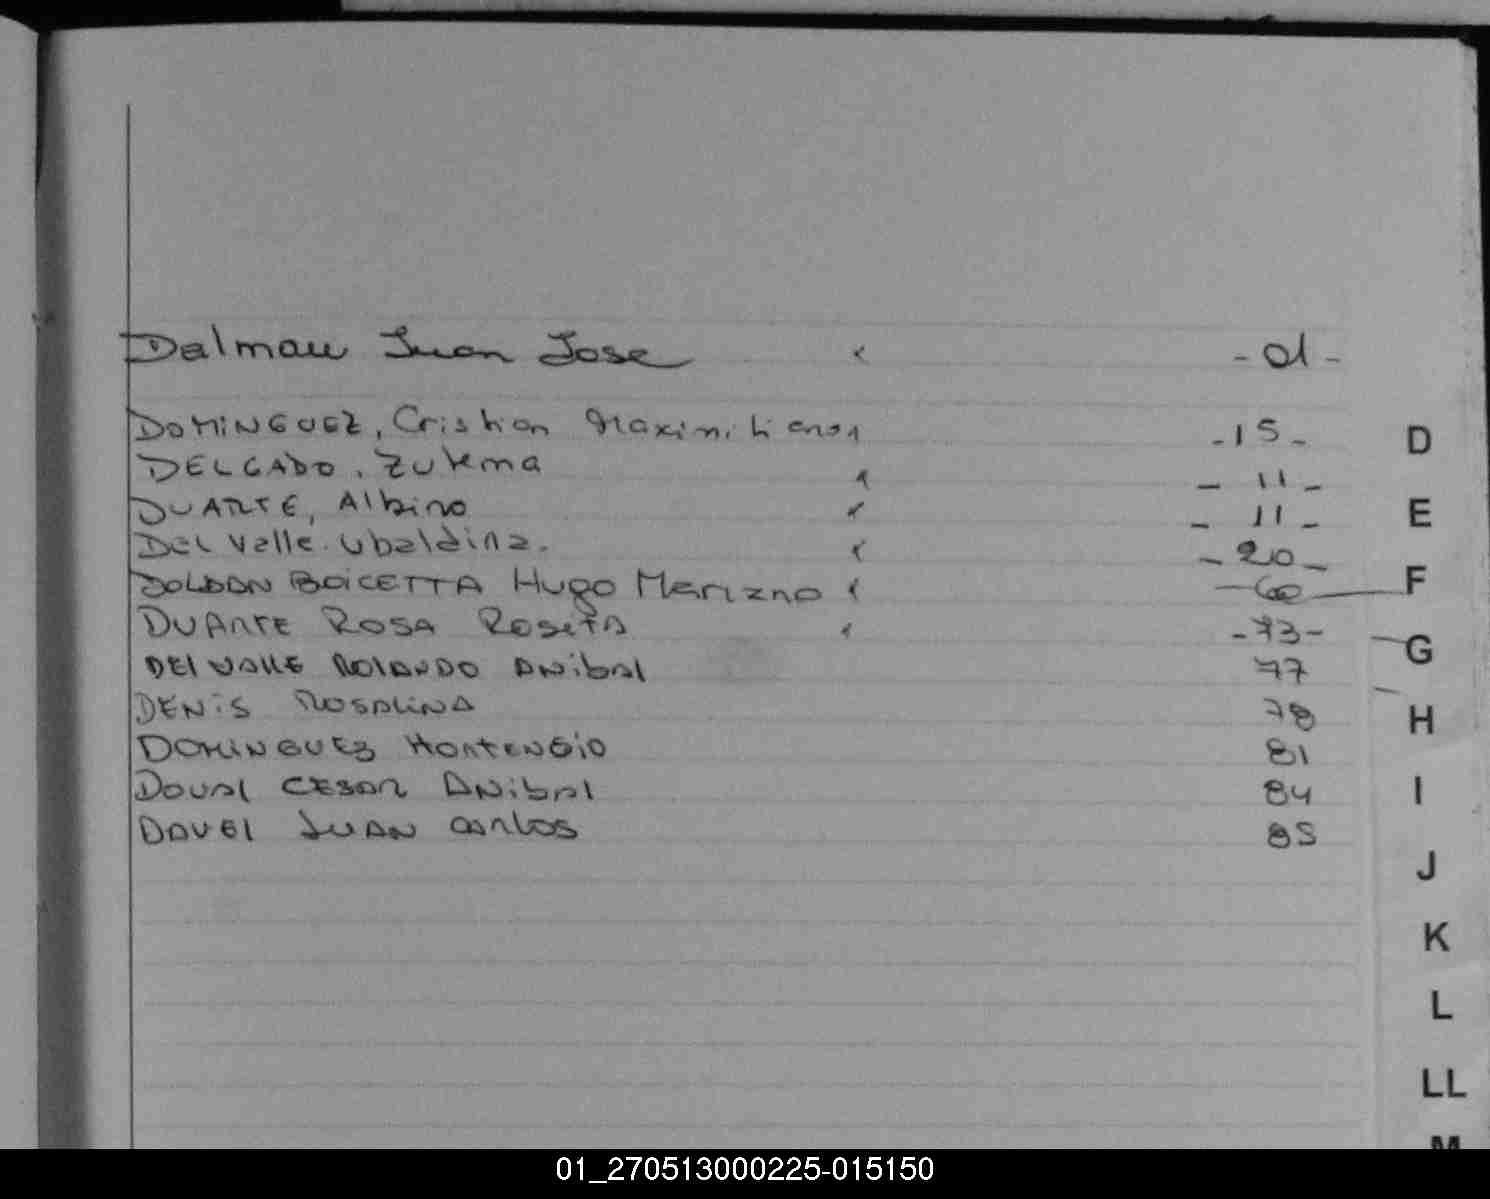 Dalmau Juan Jose - 01 -
DOMINGUEZ, Cristian Maximiliano - 15 -
DELGADO, Zulema - 11 -
DUARTE, Albino - 11 -
Del Valle. Ubaldina. - 20 -
DOLDAN BOICETTA Hugo Mariano - 60 -
DUARTE ROSA Rosita - 73 -
DEL VALLE ROLANDO ANibal 77
DENIS ROSALINA 78
DOMINGUEZ HORTENSIO 81
DOVAL CESAR ANibal 84
DAVEL JUAN CARLOS 85
D
E
F
G
H
I
J
K
L
LL
M
01_270513000225-015150